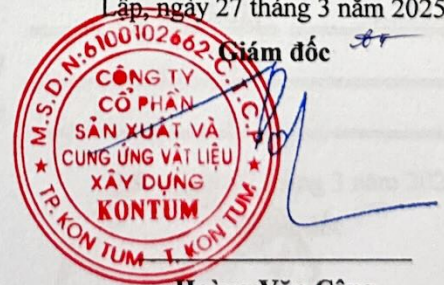 Lập, ngày 27 tháng 3 năm 2025
Giám đốc
M.S.D.N:6100102662-C.T.C.P
CÔNG TY
CỔ PHẦN
SẢN XUẤT VÀ
CUNG ỨNG VẬT LIỆU
XÂY DỰNG
KONTUM
TP. KON TUM - T. KON TUM